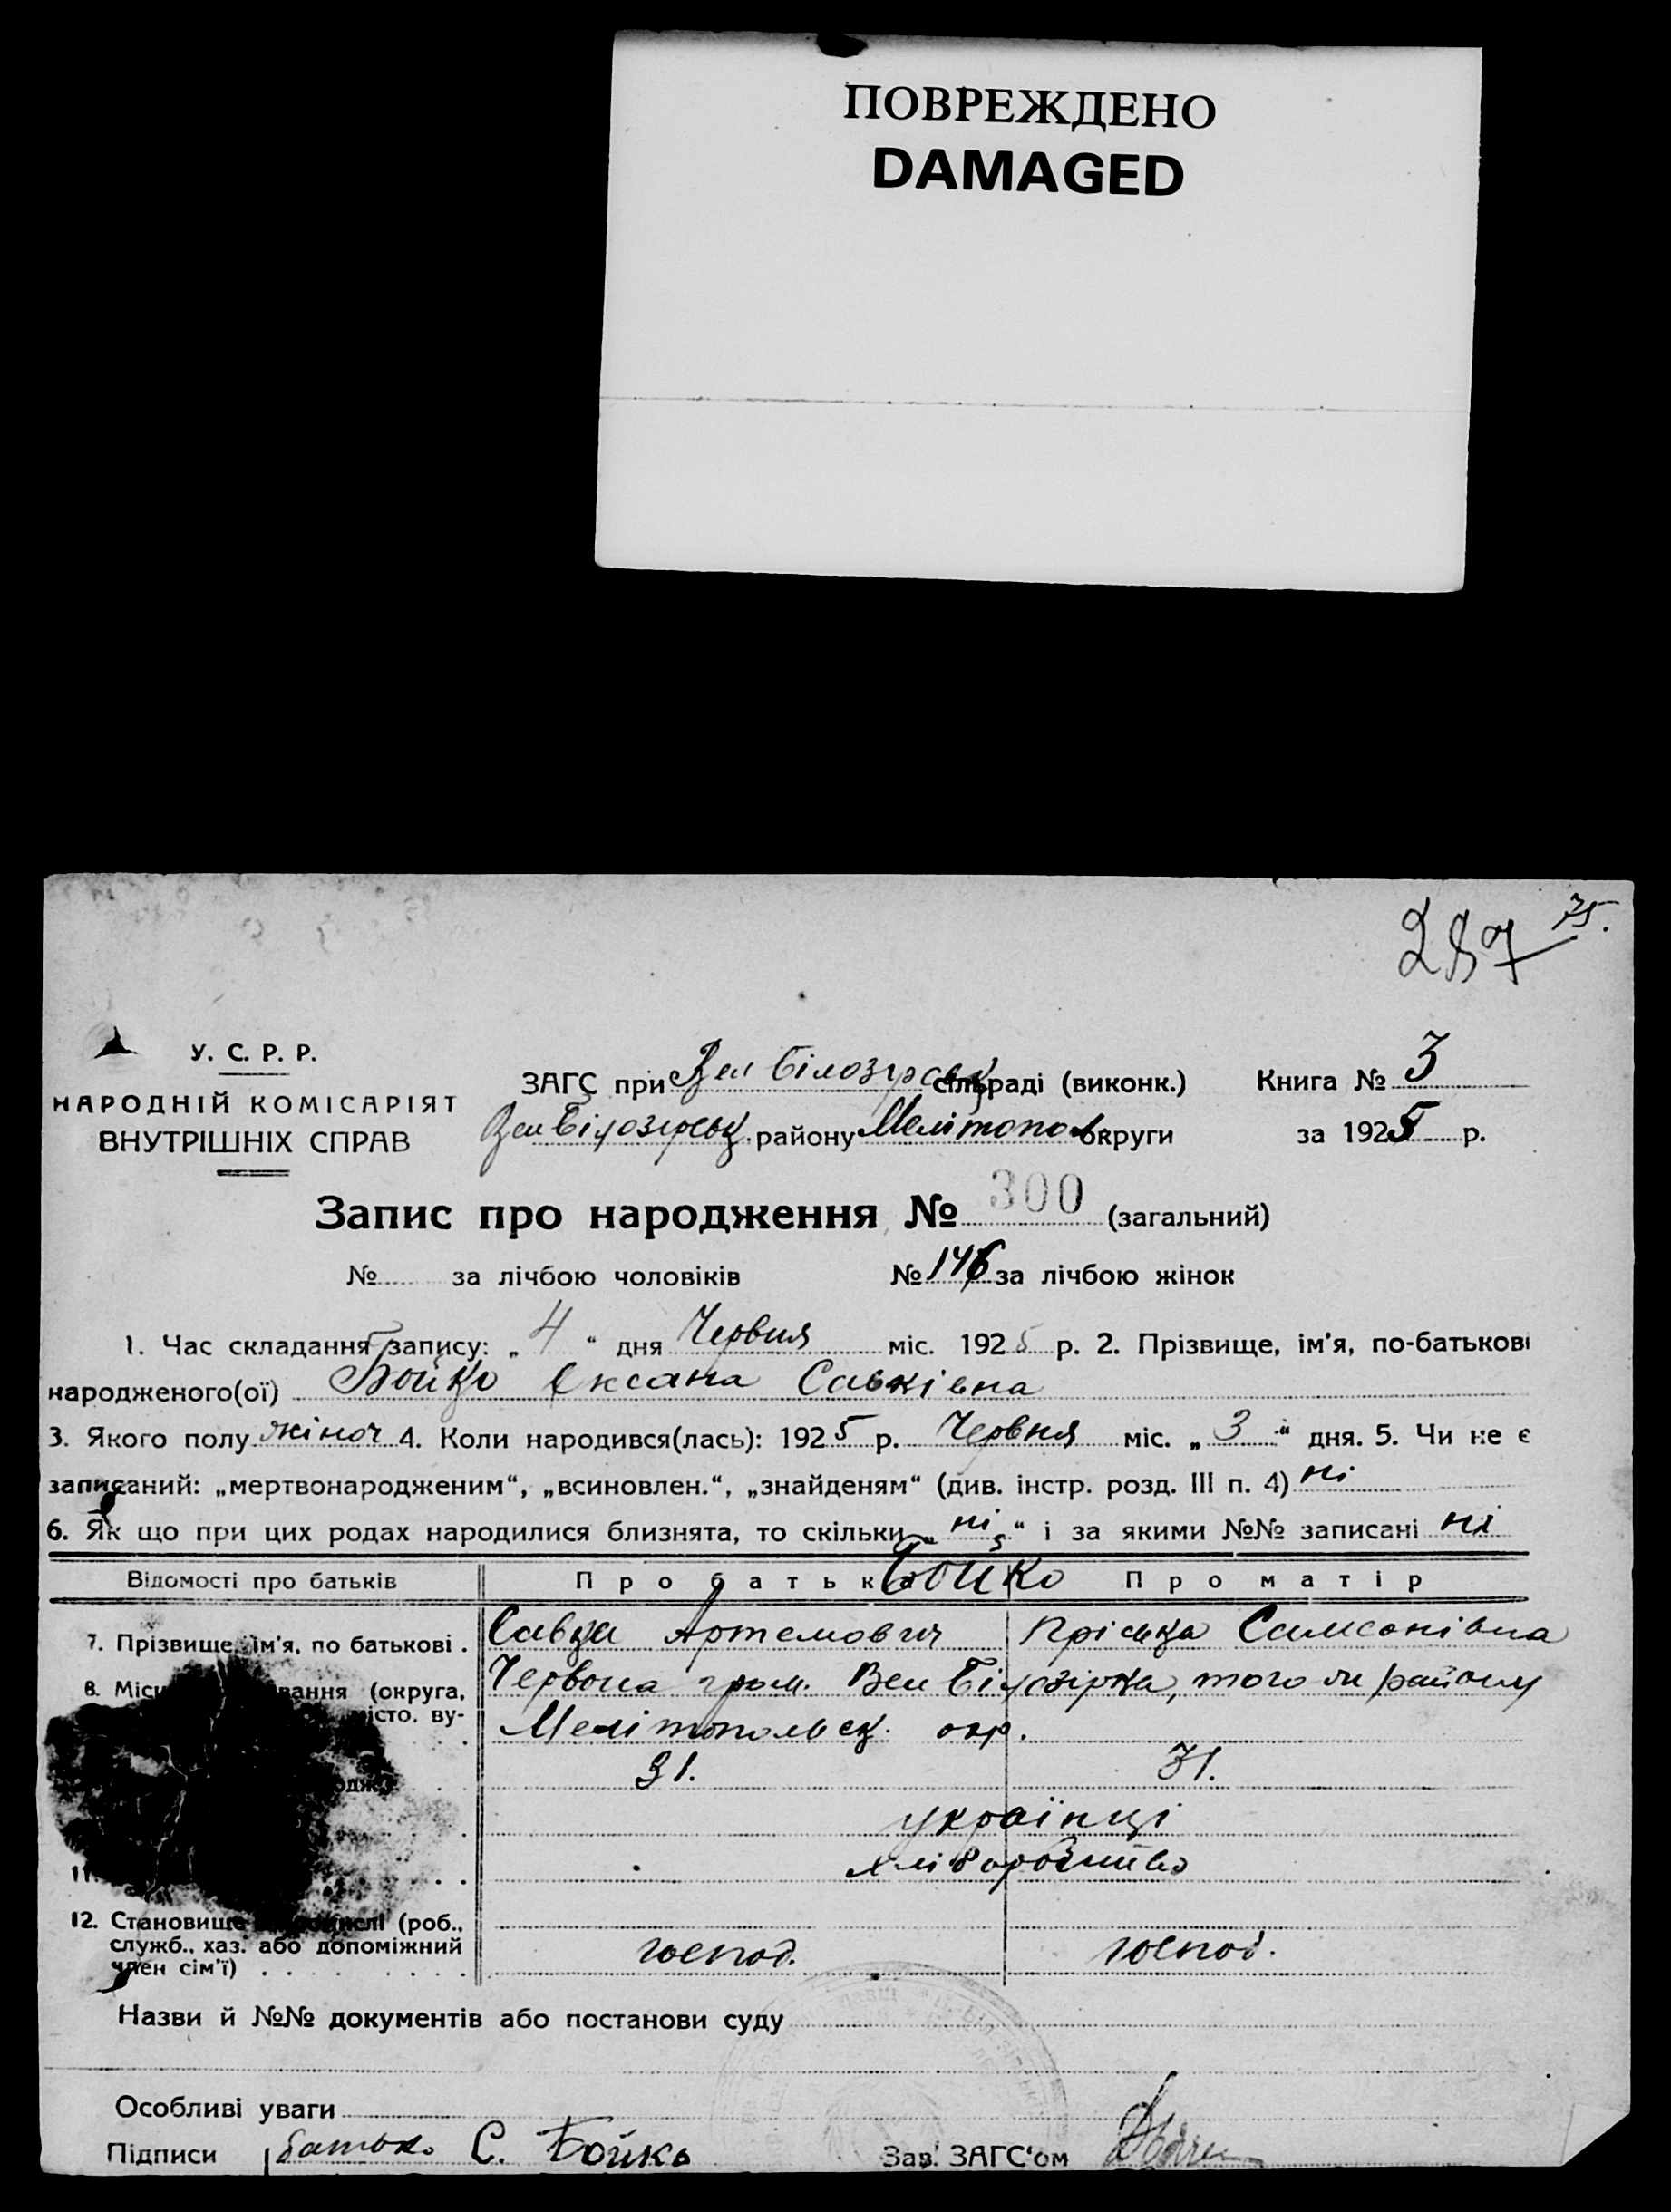 ПОВРЕЖДЕНО
DAMAGED
287 75.
У. С. Р. Р.
НАРОДНІЙ КОМІСАРІЯТ
ВНУТРІШНІХ СПРАВ
ЗАГС при Вел Білозірськ сільраді (виконк.)
Вел Білозірськ. району Мелітопол округи
Книга № 3
за 1925 р.
Запис про народження № 300 (загальний)
№ за лічбою чоловіків № 146 за лічбою жінок
1. Час складання запису: „ 4 “ дня Червня міс. 1925 р. 2. Прізвище, ім'я, по-батькові
народженого(ої) Бойко Оксана Савківна
3. Якого полу жіноч 4. Коли народився(лась): 1925 р. Червня міс. „ 3 “ дня. 5. Чи не є
записаний: „мертвонародженим“, „всиновлен.“, „знайденям“ (див. інстр. розд. III п. 4) ні
6. Як що при цих родах народилися близнята, то скільки „ ні “ і за якими №№ записані ні
Відомості про батьків Про батька Бойко Про матір
7. Прізвище, ім'я, по батькові . Савка Артемович Пріська Самсонівна
8. Місц вання (округа, Червона гром. Вел Білозірка, того ж району
місто. ву- Мелітопольськ. окр.
31. 31.
українці
11. хліборобство
12. Становище (роб.,
служб., хаз. або допоміжний
член сім'ї) . . . . . . господ. господ.
Назви й №№ документів або постанови суду
Особливі уваги
Підписи батько С. Бойко Зав. ЗАГС'ом